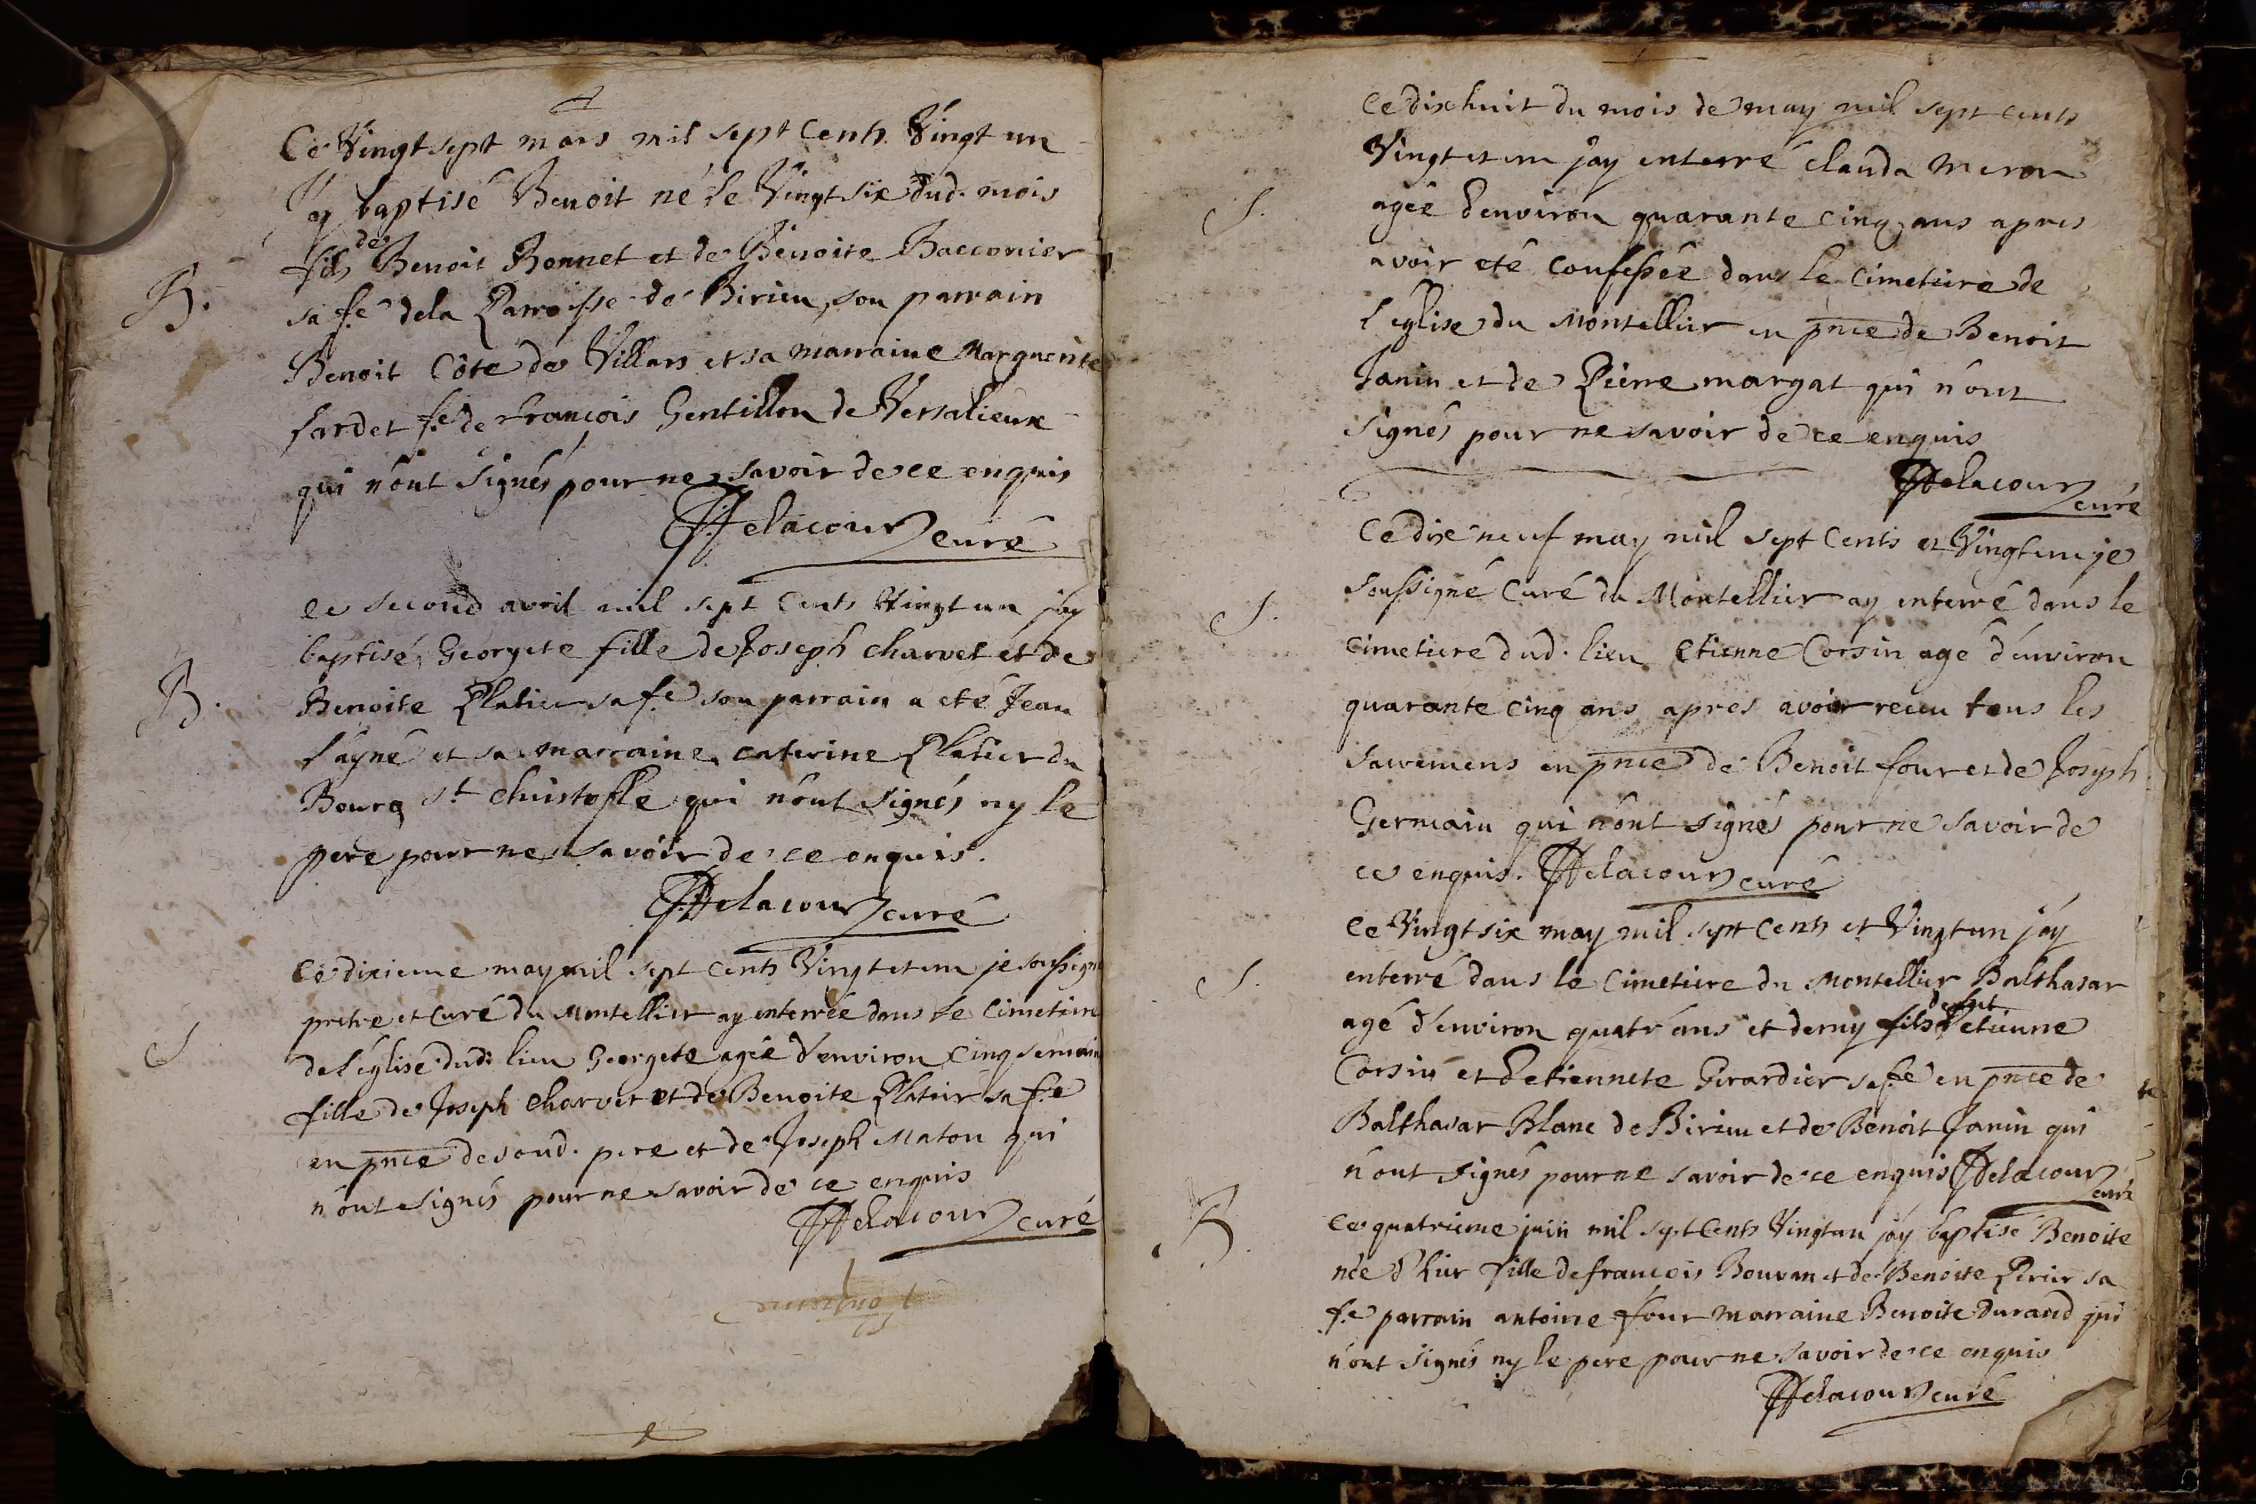 Ce Vingt sept mars mil sept cents Vingt un
J'ay baptisé Benoit né le Vingt six dud. mois
fils de Benoit Bonnet et de Benoite Bacconier
B.
sa fe dela Parroisse de Birieu, son parrain
Benoit Côte de Villars et sa marraine Marguerite
Sardet fe de francois Gentillon de Versalieux
qui n'ont Signés pour ne savoir de ce enquis
Delacour curé
ce second avril mil sept cents Vingt un j'ay
baptisé Georgete fille de Joseph charvet et de
B.
Benoite Platier sa fe son parrain a eté Jean
L'ayné et sa marraine caterine Platier du
Bourg st christofle qui n'ont signés ny le
pere pour ne savoir de ce enquis.
Delacour curé
Ce dixieme may mil sept cents Vingt et un je soussigné
pretre et curé du Montellier ay enterrée dans le cimetiere
S
de l'église dud. lieu Georgete agée d'environ cinq semain
fille de Joseph charvet et de Benoite Platier sa fe
en pnce de soud. pere et de Joseph Maton qui
n'ont signés pour ne savoir de ce enquis
Delacour curé
Ce dix huit du mois de may mil sept cents
Vingt et un j'ay enterré clauda meron
S.
agée d'environ quarante cinq ans apres
avoir eté confessée dans le cimetiere de
l'église du Montellier en pnce de Benoit
Janin et de Pierre margat qui n'ont
signés pour ne savoir de ce enquis
Delacour curé
Ce dix neuf may mil sept cents et Vingt un je
S.
soussigné curé du Montellier ay enterré dans le
cimetiere dud. lieu etienne Corsin agé d'environ
quarante cinq ans apres avoir receu tous les
sacremens en pnce de Benoit four et de Joseph
Germain qui n'ont signés pour ne savoir de
ce enquis. Delacour curé
Ce Vingt six may mil sept cents et Vingt un j'ay
S.
enterré dans le cimetiere du Montellier Balthasar
agé d'environ quatr'ans et demy fils defunt etienne
Corsin et d'etiennete Girardier sa fe en pnce de
Balthasar Blanc de Birieu et de Benoit Janin qui
n'ont signés pour ne savoir de ce enquis Delacour curé
B.
Ce quatrieme juin mil sept cents Vingt un j'ay baptisé Benoite
née d'hier fille de francois Bouvan et de Benoite Perier sa
fe parrain antoine four marraine Benoite Durand qui
n'ont signés ny le pere pour ne savoir de ce enquis
Delacour curé